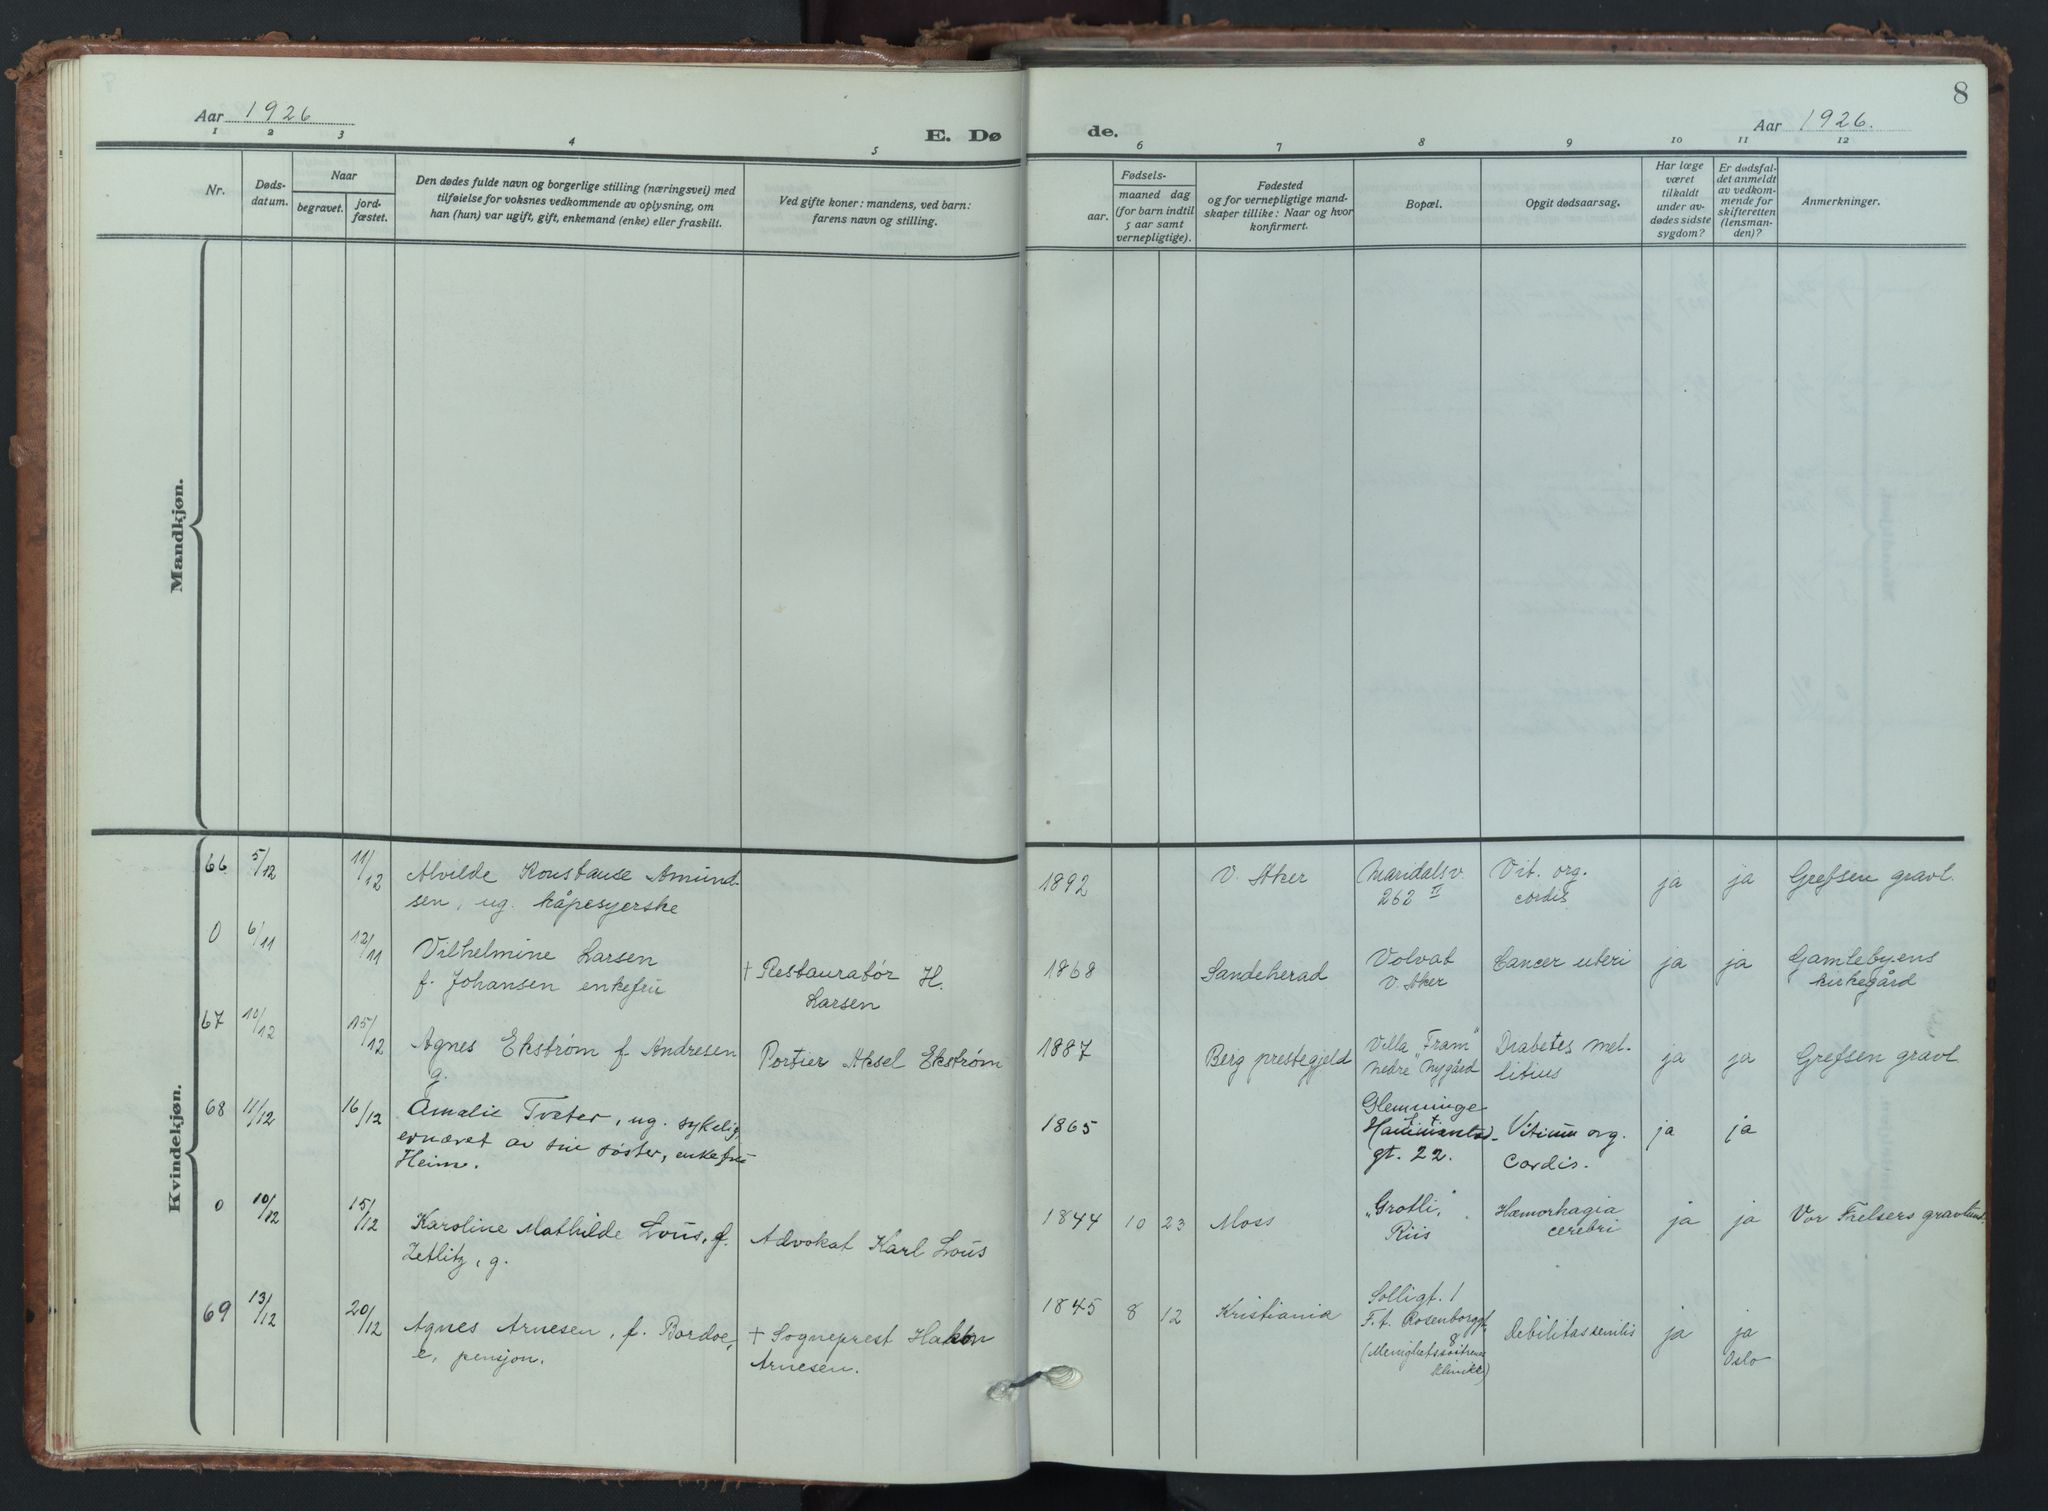 8
Aar 1926
E. Dø
de.
Aar 1926.
1 2 3 4 5 6 7 8 9 10 11 12
Nr.
Døds-
datum.
Naar
begravet.
jord-
fæstet.
Den dødes fulde navn og borgerlige stilling (næringsvei) med
tilføielse for voksnes vedkommende av oplysning, om
han (hun) var ugift, gift, enkemand (enke) eller fraskilt.
Ved gifte koner: mandens, ved barn:
farens navn og stilling.
Fødsels-
aar.
maaned dag
(for barn indtil
5 aar samt
vernepligtige).
Fødested
og for vernepligtige mand-
skaper tillike: Naar og hvor
konfirmert.
Bopæl.
Opgit dødsaarsag.
Har læge
været
tilkaldt
under av-
dødes sidste
sygdom?
Er dødsfal-
det anmeldt
av vedkom-
mende for
skifteretten
(lensman-
den)?
Anmerkninger.
Mandkjøn.
Kvindekjøn.
66 5/12 11/12
Alvilde Konstanse Amund-
sen, ug. kåpesyerske
1892
V. Aker
Maridalsv.
262 II
Vit. org.
cordis
ja ja
Grefsen gravl.
0 6/11 12/11
Vilhelmine Larsen
f. Johansen enkefru
+ Restauratør H.
Larsen
1868
Sandeherad
Volvat
V. Aker
Cancer uteri
ja ja
Gamlebyens
kirkegård
67 10/12 15/12
Agnes Ekstrøm f. Andresen
g.
Portier Aksel Ekstrøm
1887
Berg prestegjeld
Villa "Fram"
nedre Nygård
Diabetes mel-
litius
ja ja
Grefsen gravl
68 11/12 16/12
Amalie Tveter, ug. sykelig,
ernæret av sin søster, enkefru
Heim.
1865
gt. 22.
Vitium org.
Cordis.
ja ja
0 10/12 15/12
Karoline Mathilde Loüs, f.
Zetlitz, g.
Advokat Karl Loüs
1844 10 23
Moss
"Grotli",
Riis
Hæmorhagia
cerebri
ja ja
Vor Frelsers gravlund.
69 13/12 20/12
Agnes Arnesen, f. Bordoe,
e, pensjon.
+ Sogneprest Hakon
Arnesen.
1845 8 12
Kristiania
Solligt. 1
F. t. Rosenborggt.
8
(Menighetssøstrenes
klinikk)
Debilitas senilis
ja ja
Oslo